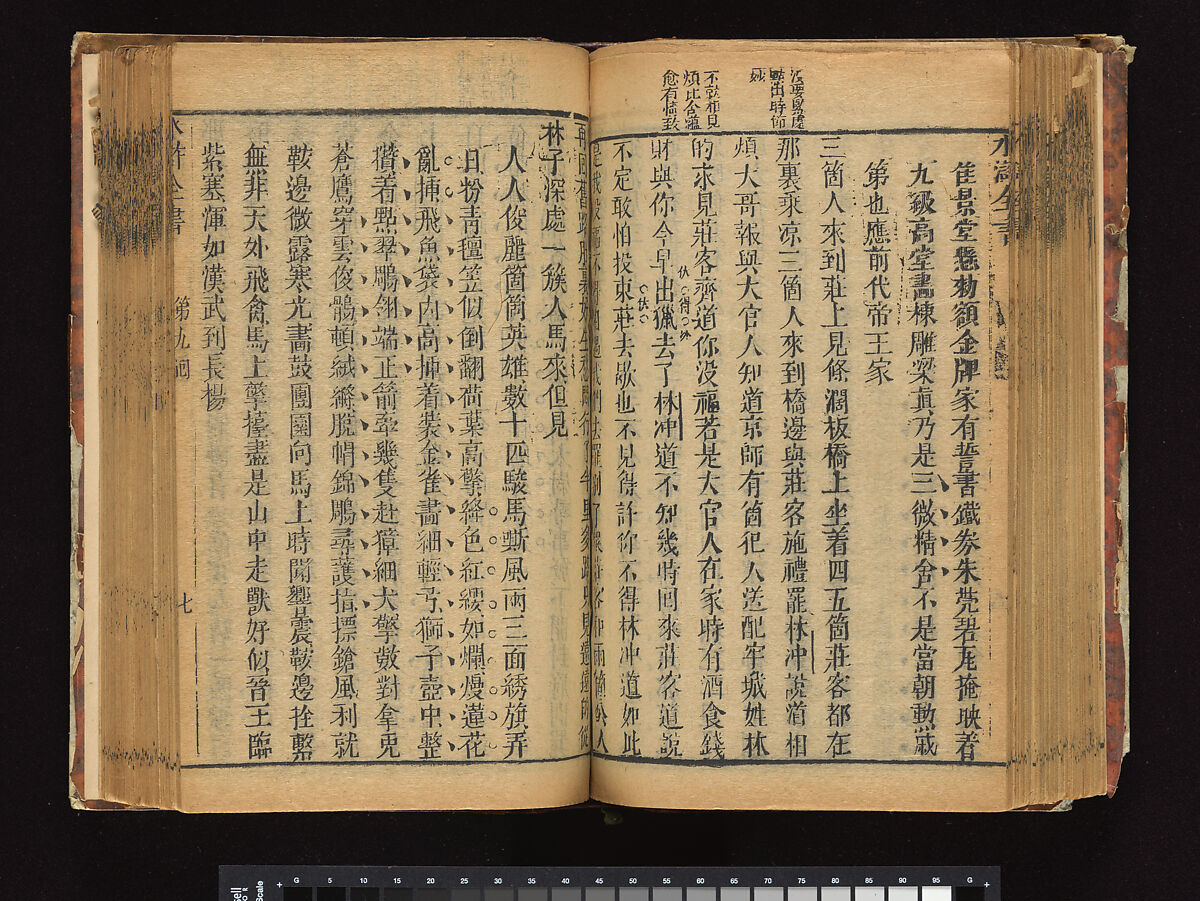 水滸全書
雀景堂懸勅額金牌家有誓書鐵券朱甍碧瓦掩映着
九級高堂畫棟雕梁真乃是三微精舍不是當朝勲戚
第也應前代帝王家
三箇人來到莊上見條濶板橋上坐着四五箇莊客都在
那裏乘凉三箇人來到橋邊與莊客施禮罷林冲說道相
煩大哥報與大官人知道京師有箇犯人送配牢城姓林
的求見莊客齊道你没福若是大官人在家時有酒食錢
財與你今早出獵去了林冲道不知幾時回來莊客道說
不定敢怕投東莊去歇也不見得許你不得林冲道如此
没要緊處
點出時節
妙
不就相見
煩比含蘊
愈有情致
林子深處一簇人馬來但見
人人俊麗箇箇英雄數十匹駿馬嘶風兩三面綉旗弄
日粉青氊笠似倒翻荷葉高擎絳色紅纓如爛熳蓮花
亂挿飛魚袋内高挿着裝金雀畫細輕弓獅子壺中整
攢着點翠鵰翎端正箭牽幾隻赴獐細犬擎數對拿兎
蒼鷹穿雲俊鶻頓絨縧脫帽錦鵰尋護指摽鎗風利就
鞍邊微露寒光畫鼓團圞向馬上時聞響震鞍邊拴繫
無非天外飛禽馬上擎擡盡是山中走獸好似晉王臨
紫塞渾如漢武到長楊
水滸全書
第九囘
七
Bell
Scale
G 5 10 15 20 25 30 35 40 45 50 55 60 65 70 75 80 85 90 95 G